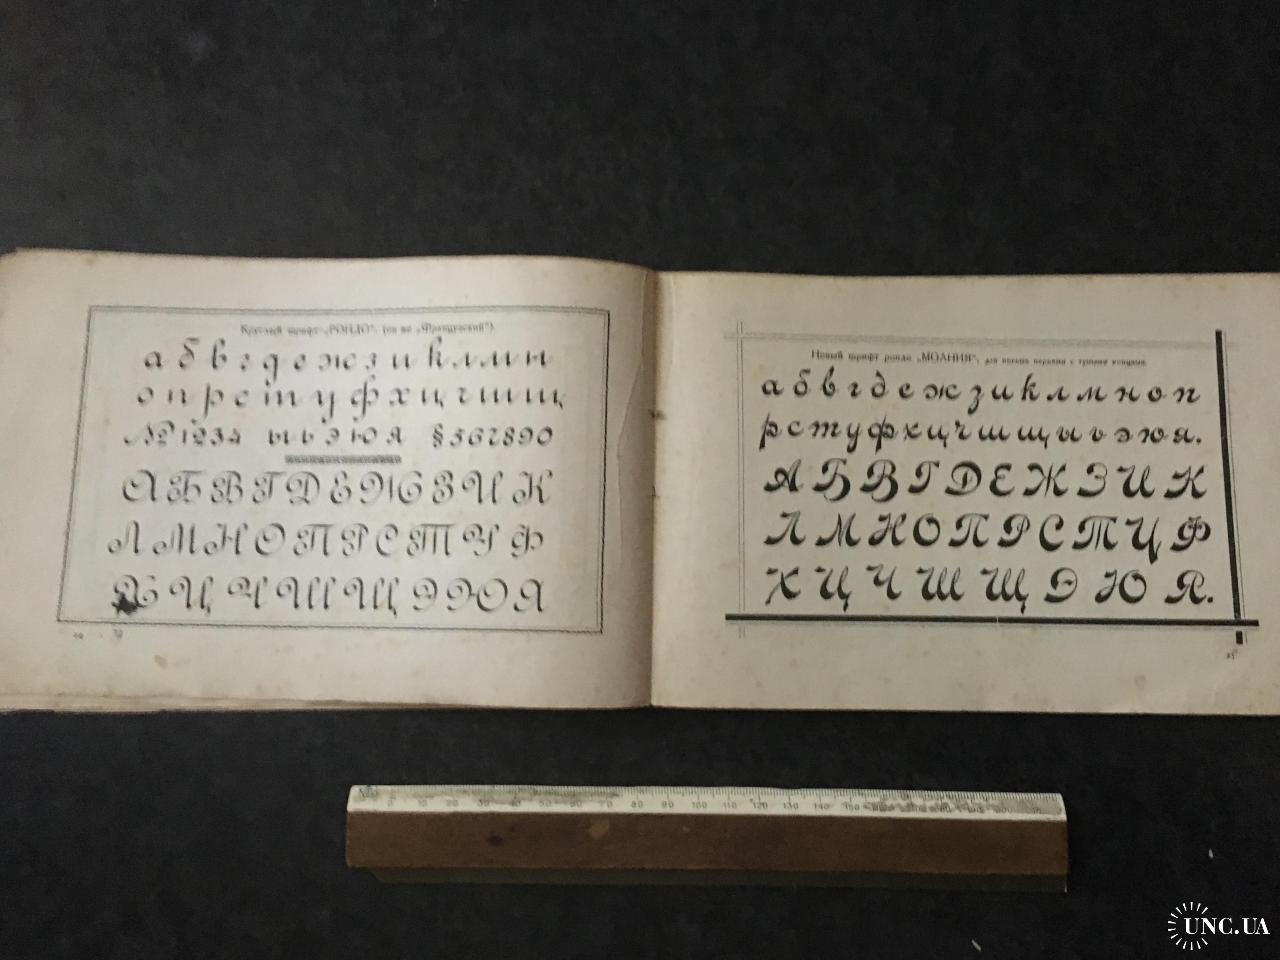 Круглый шрифт „РОНДО“. (он же „Французский“).
а б в г д е ж з и к л м н
о п р с т у ф х ц ч ш щ
№ 1234 ы ь э ю я § 567890
А Б В Г Д Е Ж З И К
Л М Н О П Р С Т У Ф
Х Ц Ч Ш Щ Э Ю Я
Новый шрифт рондо „МОЛНИЯ“, для письма перьями с тупыми концами.
а б в г д е ж з и к л м н о п
р с т у ф х ц ч ш щ ы ь э ю я.
А Б В Г Д Е Ж З И К
Л М Н О П Р С Т Ц Ф
Х Ц Ч Ш Щ Э Ю Я.
0 10 20 30 40 50 60 70 80 90 100 110 120 130 140 150
UNC.UA